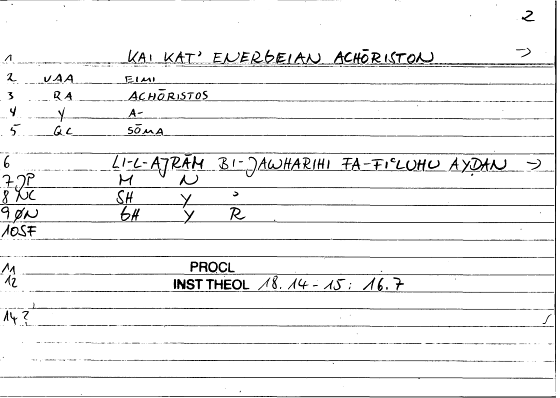 2
1 KAI KAT' ENERGEIAN ACHŌRISTON →
2 VAA EIMI
3 RA ACHŌRISTOS
4 Y A-
5 QC SŌMA
6 LI-L-AJRĀM BI-JAWHARIHI FA-FIʿLUHU AYḌAN →
7 JP M N
8 NC SH Y ʾ
9 ØN GH Y R
10 SF
11 PROCL
12 INST THEOL 18.14-15: 16.7
14 ?